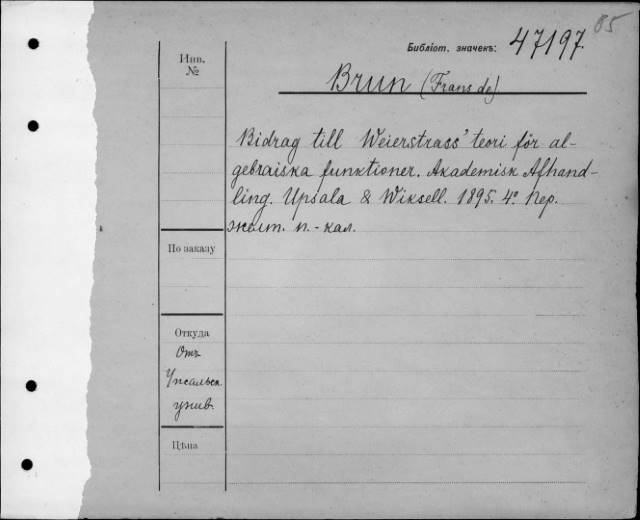 85
Библіот. значекъ: 47197.
Инв.
№
Brun (Frans de)
Bidrag till Weierstrass' teori för al-
gebraiska funktioner. Akademisk Afhand-
ling. Upsala & Wiksell. 1895. 4° Пер.
желт. п.-кал.
По заказу
Откуда
Отъ
Упсальск.
унив.
Цѣна